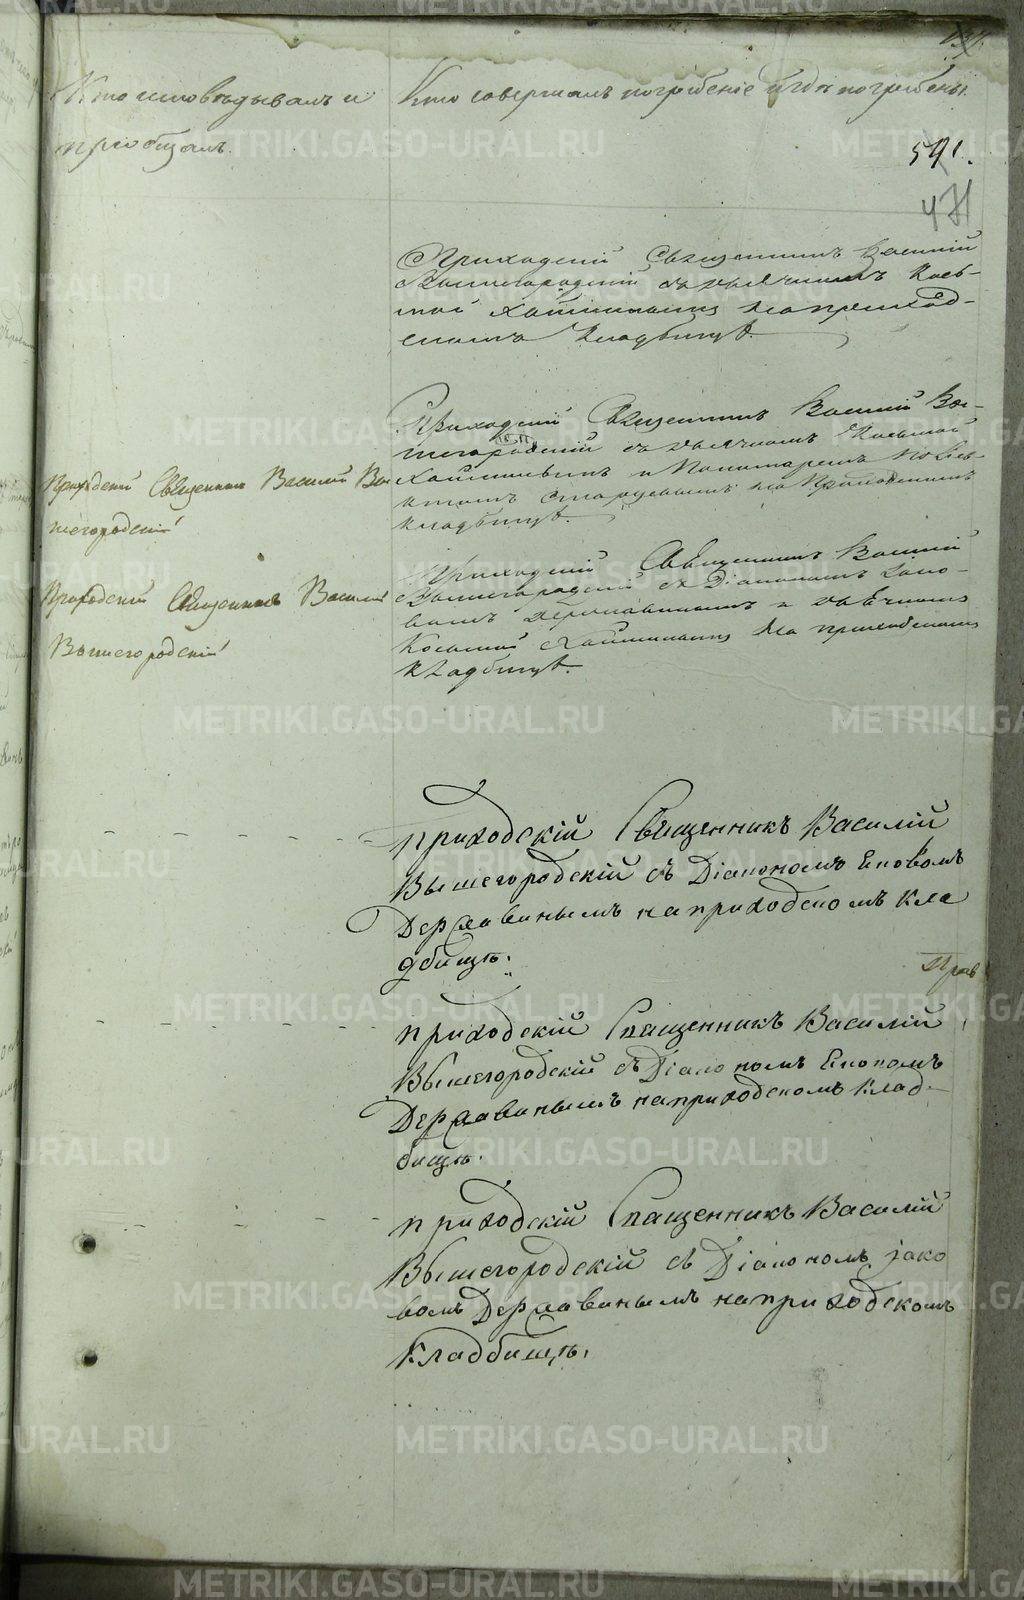 Кто исповѣдывалъ и
приобщалъ.
Кто совершалъ погребеніе и гдѣ погребены.
591.
471
Приходскій Священникъ Василій
Вышегородскій съ дьячкомъ Кось-
мой на приход-
скомъ кладбищѣ.
Приходскій Священникъ Василій Вы-
шегородскій съ дьячкомъ Косьмой
и Пономаремъ
на Приходскомъ
кладбищѣ.
Приходскій Священникъ Василій Вы
шегородскій
Приходскій Священникъ Василій
Вышегородскій съ Діакономъ Іако-
вомъ Державинымъ и дьячкомъ
Косьмой на приходскомъ
кладбищѣ.
Приходскій Священникъ Василій
Вышегородскій
приходскій Священникъ Василій
Вышегородскій съ Діакономъ Ековомъ
Державинымъ на приходскомъ кла
дбищѣ.
приходскій Священникъ Василій
Вышегородскій съ Діакономъ Ековомъ
Державинымъ на приходскомъ клад-
бищѣ.
приходскій Священникъ Василій
Вышегородскій съ Діакономъ іако
вомъ Державинымъ на приходскомъ
кладбищѣ.
METRIKI.GASO-URAL.RU